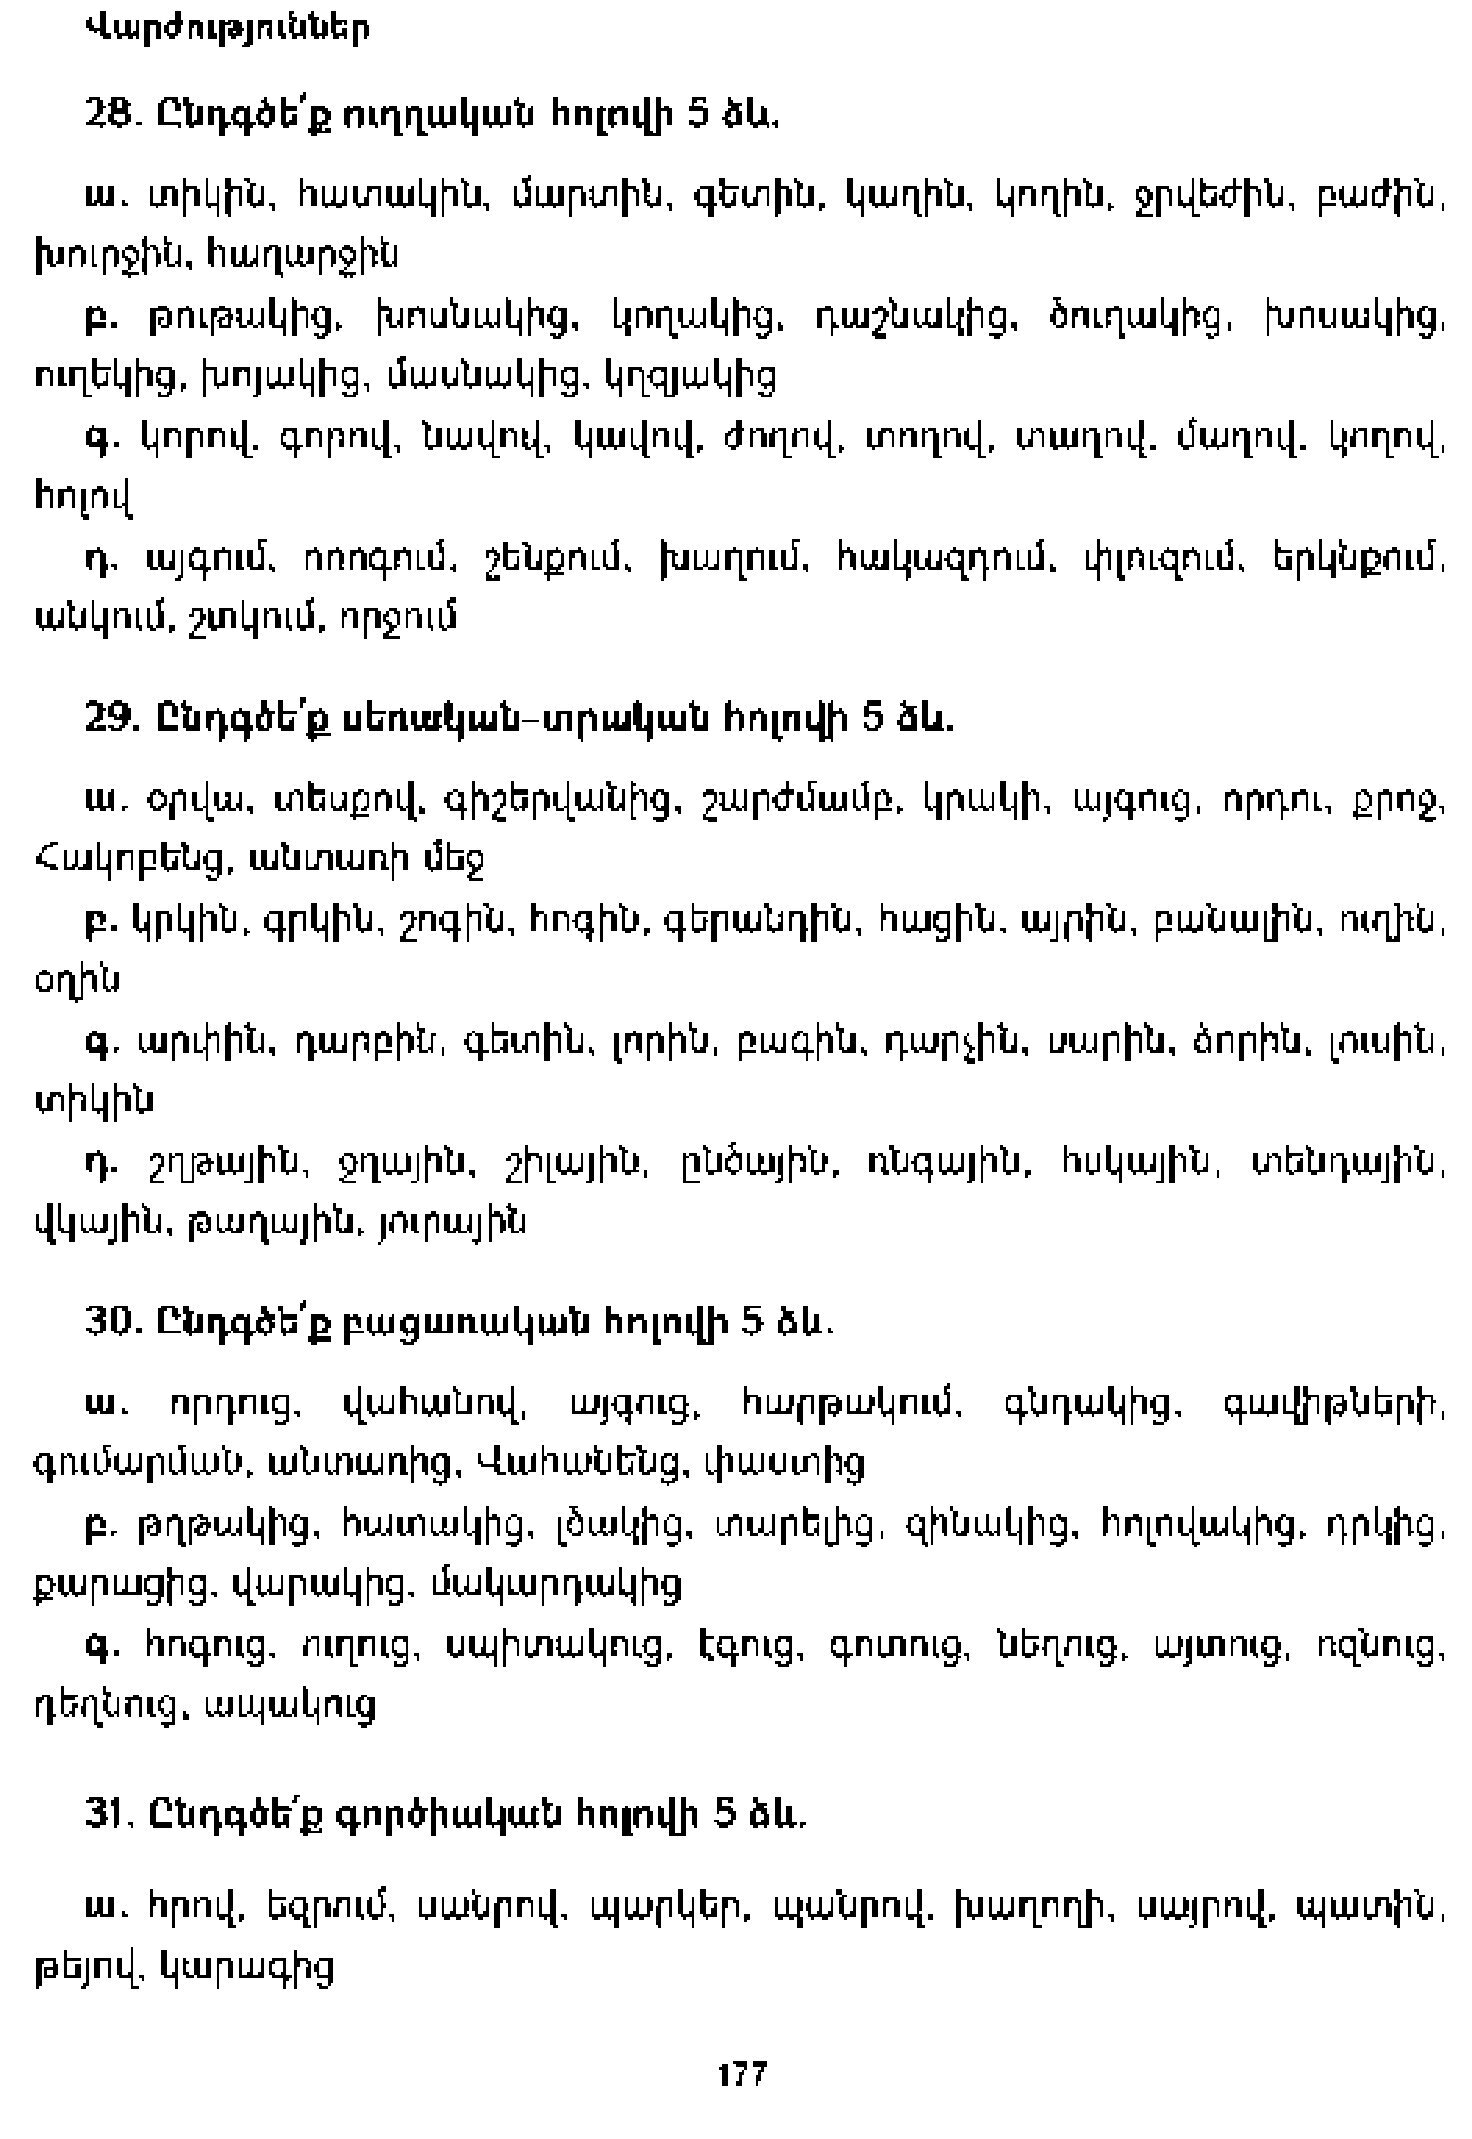 Վարժություններ
28. Ընդգծե՛ք ուղղական հոլովի 5 ձև.
ա. տիկին, հատակին, մարտին, գետին, կաղին, կողին, ջրվեժին, բաժին,
խուրջին, հաղարջին
բ. թութակից, խոսնակից, կողակից, դաշնակից, ծուղակից, խոսակից,
ուղեկից, խոյակից, մասնակից, կղզյակից
գ. կորով, գորով, նավով, կավով, ժողով, տողով, տաղով, մաղով, կողով,
հոլով
դ. այգում, ոռոգում, շենքում, խաղում, հակազդում, փլուզում, երկնքում,
անկում, շտկում, որջում
29. Ընդգծե՛ք սեռական-տրական հոլովի 5 ձև.
ա. օրվա, տեսքով, գիշերվանից, շարժմամբ, կրակի, այգուց, որդու, քրոջ,
Հակոբենց, անտառի մեջ
բ. կրկին, գրկին, շոգին, հոգին, գերանդին, հացին, այրին, բանալին, ուղին,
օղին
գ. արփին, դարբին, գետին, լորին, բագին, դարչին, սարին, ձորին, լուսին,
տիկին
դ. շղթային, ջղային, շիլային, ընծային, ռնգային, հսկային, տենդային,
վկային, թաղային, յուրային
30. Ընդգծե՛ք բացառական հոլովի 5 ձև.
ա. որդուց, վահանով, այգուց, հարթակում, գնդակից, գավիթների,
գումարման, անտառից, Վահանենց, փաստից
բ. թղթակից, հատակից, լծակից, տարելից, զինակից, հոլովակից, դրկից,
քարացից, վարակից, մակարդակից
գ. հոգուց, ուղուց, սպիտակուց, էգուց, գոտուց, նեղուց, այտուց, ոզնուց,
դեղնուց, ապակուց
31. Ընդգծե՛ք գործիական հոլովի 5 ձև.
ա. հրով, եզրում, սանրով, պարկեր, պանրով, խաղողի, սայրով, պատին,
թեյով, կարագից
177